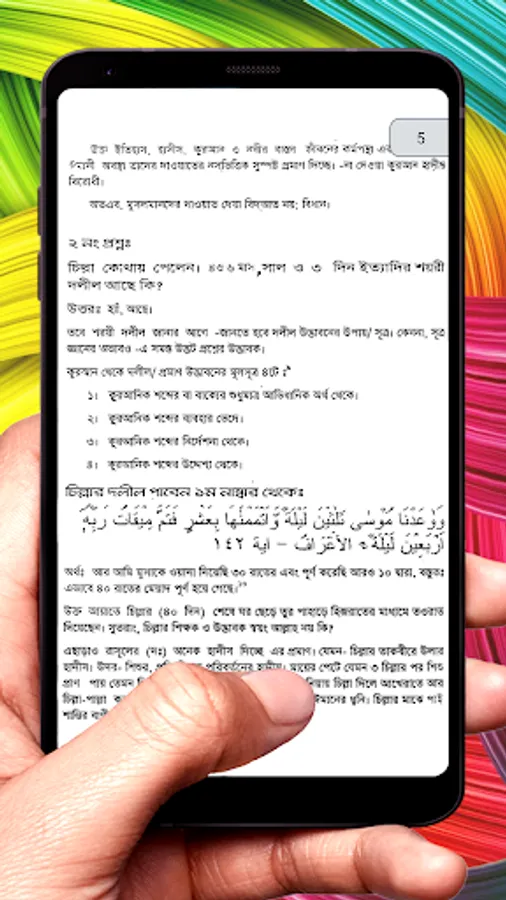 5
উক্ত ইতিহাস, হাদীস, কুরআন ও নবীর বাস্তব জীবনের কর্মপন্থা
অবস্থা তাদের দাওয়াতের সুস্পষ্ট প্রমাণ দিচ্ছে। -না দেওয়া কুরআন হাদীস
বিরোধী।
অতএব, মুসলমানদের দাওয়াত দেয়া বিদ্আত নয়; বিধান।
২ নং প্রশ্নঃ
চিল্লা কোথায় পেলেন। সাল ও ৩ দিন ইত্যাদির শরয়ী
দলীল আছে কি?
উত্তরঃ হ্যাঁ, আছে।
তবে শরয়ী দলীল জানার আগে -জানতে হবে দলীল উদ্ভাবনের উপায়/ সূত্র। কেননা, সূত্র
জ্ঞানের অভাবও -এ সমস্ত উদ্ভট প্রশ্নের উদ্ভাবক।
কুরআন থেকে দলীল/ প্রমাণ উদ্ভাবনের মূলসূত্র ৪টে ঃ
১। কুরআনিক শব্দের বা বাক্যের শুধুমাত্র আভিধানিক অর্থ থেকে।
২। কুরআনিক শব্দের ব্যবহার ভেদে।
৩। কুরআনিক শব্দের নির্দেশনা থেকে।
৪। কুরআনিক শব্দের উদ্দেশ্য থেকে।
চিল্লার দলীল পাবেন ১ম নাম্বার থেকেঃ
وَوٰعَدْنَا مُوْسٰى ثَلٰثِيْنَ لَيْلَةً وَّاَتْمَمْنٰهَا بِعَشْرٍ فَتَمَّ مِيْقَاتُ رَبِّهٖ
اَرْبَعِيْنَ لَيْلَةً ، الاَعْرَاف – اية ١٤٢
অর্থঃ আর আমি মুসাকে ওয়াদা দিয়েছি ৩০ রাতের এবং পূর্ণ করেছি আরও ১০ দ্বারা, বস্তুতঃ
এভাবে ৪০ রাতের মেয়াদ পূর্ণ হয়ে গেছে।
উক্ত আয়াতে চিল্লার (৪০ দিন) শেষে ঘর ছেড়ে তুর পাহাড়ে হিজরাতের মাধ্যমে তওরাত
দিয়েছেন। সুতরাং, চিল্লার শিক্ষক ও উদ্ভাবক স্বয়ং আল্লাহ নয় কি?
এছাড়াও রাসূলের (দঃ) অনেক হাদীস দিচ্ছে এর প্রমাণ। যেমন- চিল্লার তাকবীরে উলার
হাদীস। উদর- শিশুর, পরিবর্তনের হাদীস। মায়ের পেটে যেমন ৩ চিল্লার পর শিশু
প্রাণ পায় তেমন চিল্লা দিলে আখেরাতে আর
চিল্লা-পাল্লা ঈমানের ধ্বনি। চিল্লার মাঝে পাই
শান্তির